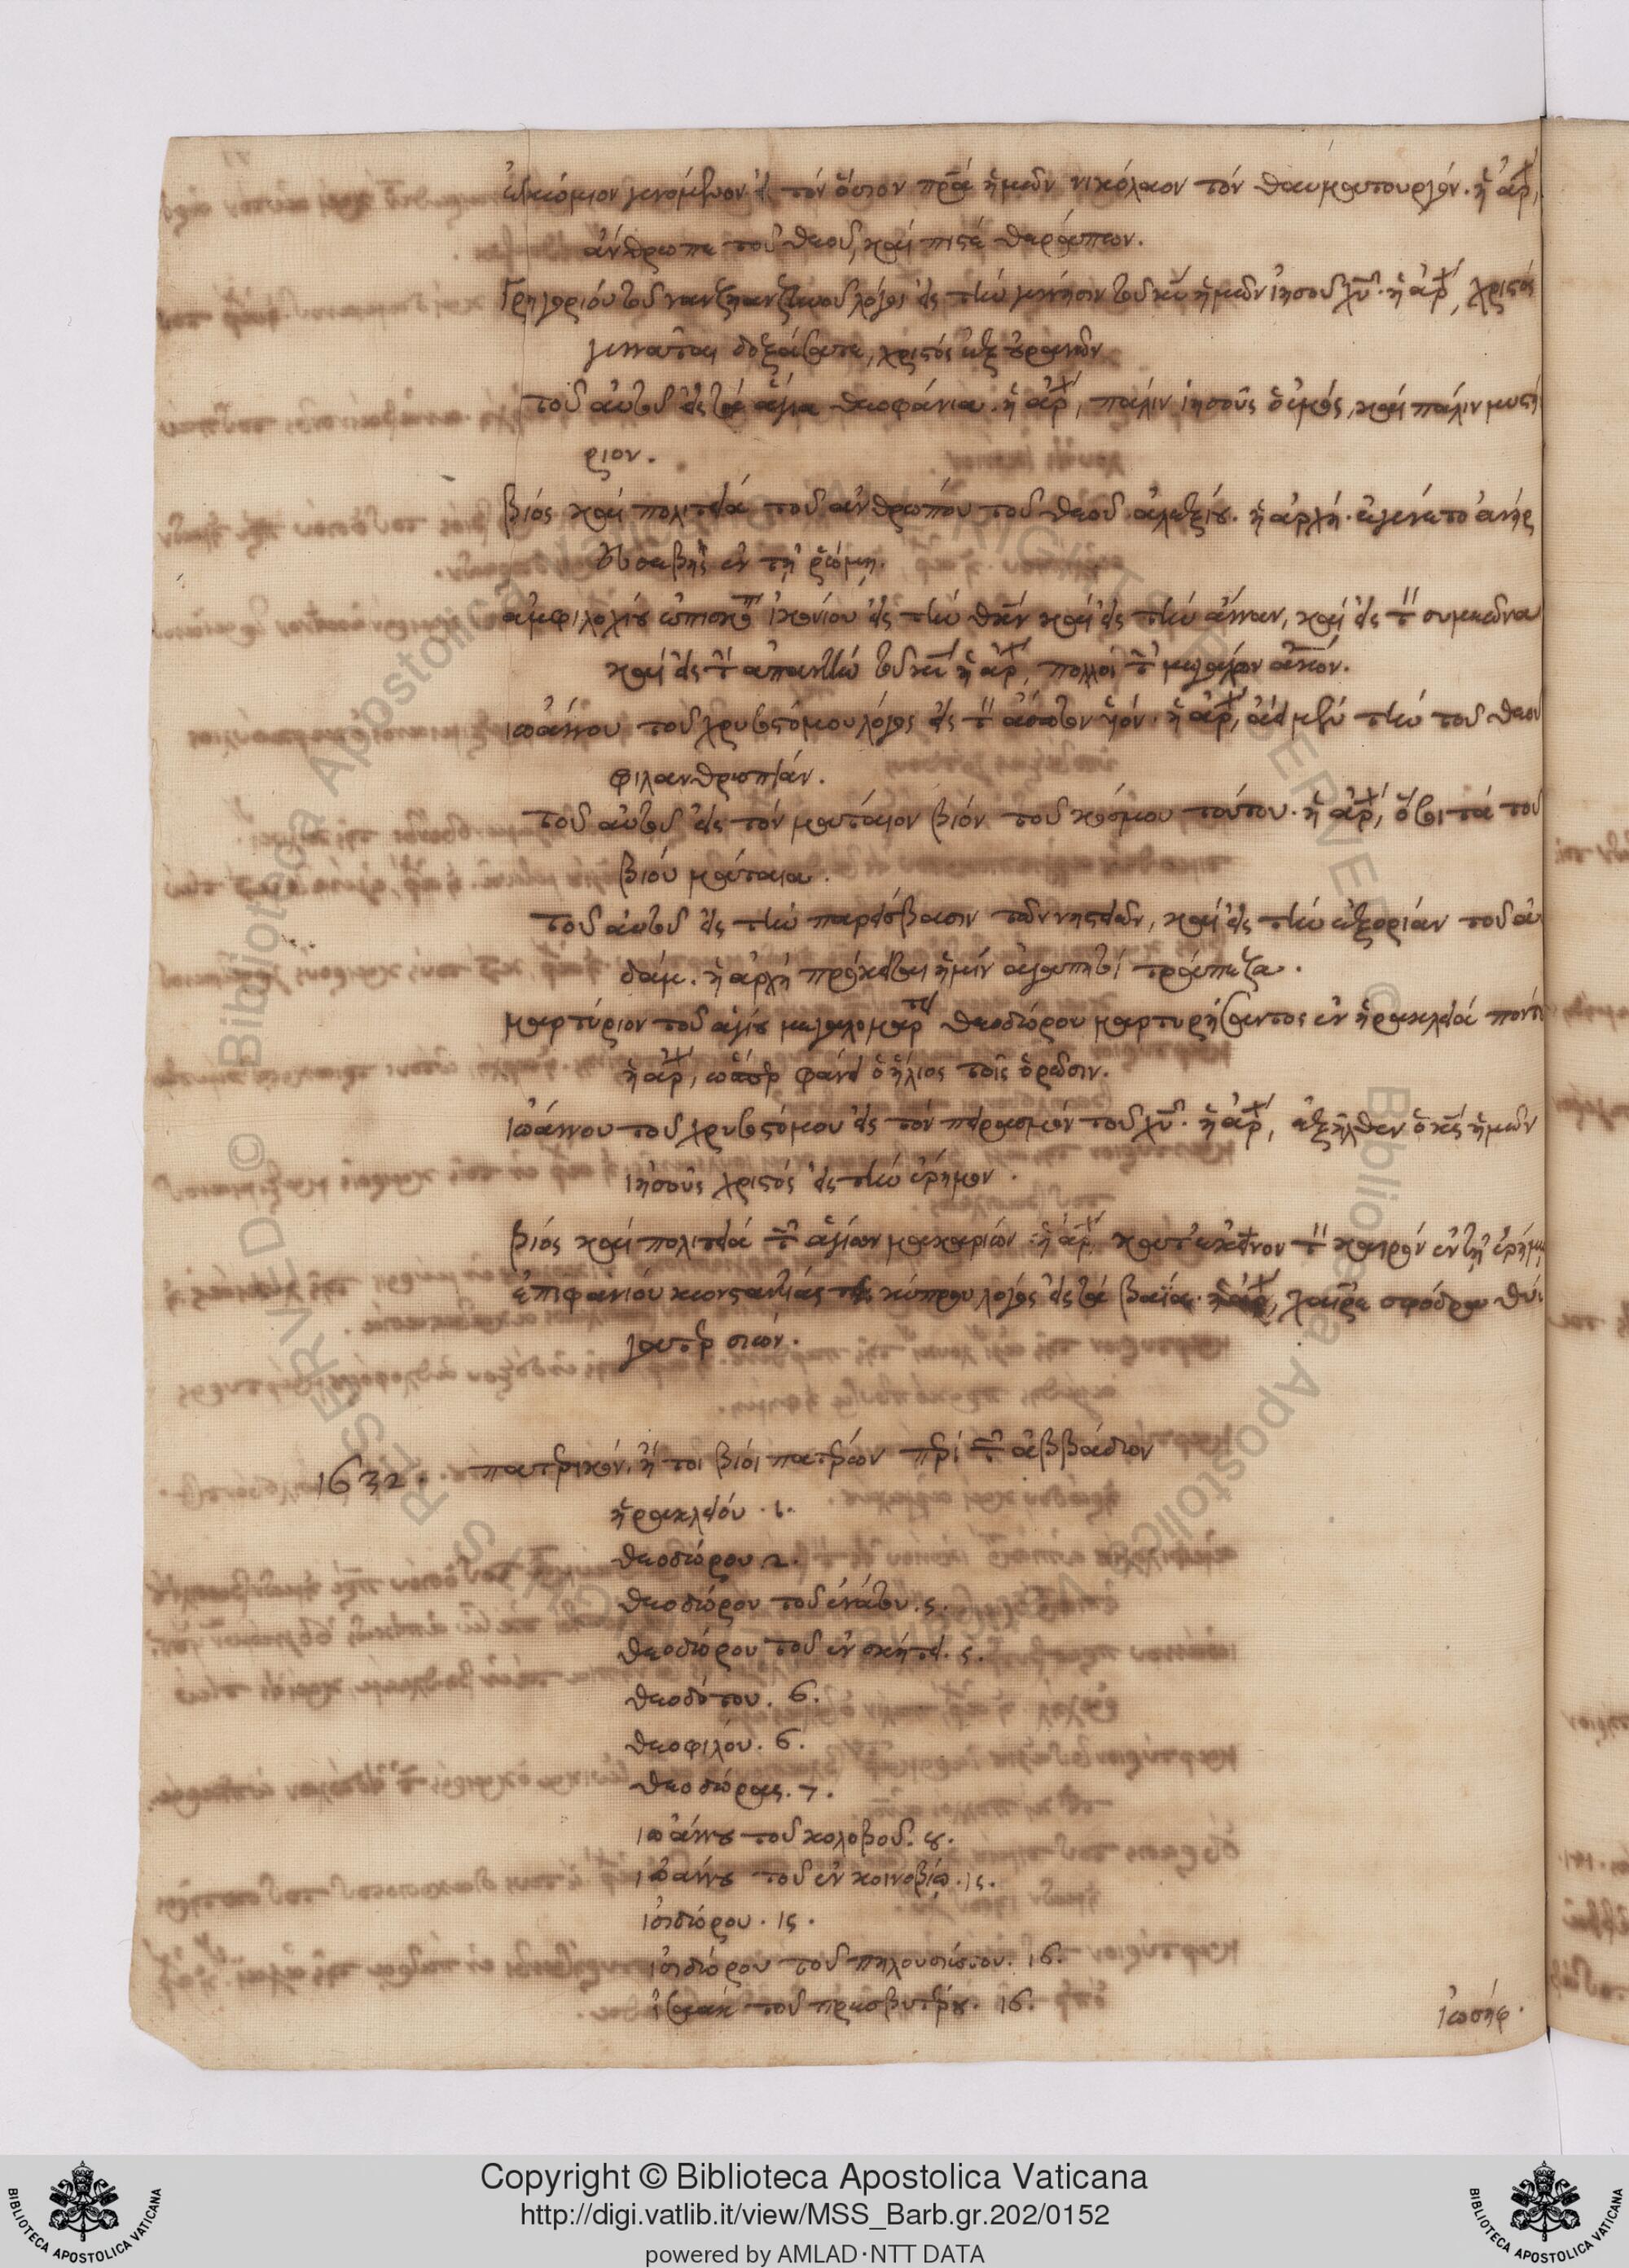 ἐγκώμιον γενόμενον εἰς τόν ὅσιον πρᾶ ἡμῶν νικόλαον τόν θαυματουργόν. ἡ ἀρχ,
ἄνθρωπε τοῦ θεοῦ, καί πιστέ θεράπων.
Γρηγορίου τοῦ νανζηανζηνοῦ λόγος εἰς τήν γέννησιν τοῦ κῦ ἡμῶν ἰησοῦ χῦ. ἡ ἀρχ, χριστός
γεννᾶται δοξάσατε, χριστός ἐξ οὐρανῶν
τοῦ αὐτοῦ εἰς τά ἅγια θεοφάνια. ἡ ἀρχ, πάλιν ἰησοῦς ὁ ἐμός, καί πάλιν μυστή
ριον.
βίος καί πολιτεία τοῦ ἀνθρώπου τοῦ θεοῦ ἀλεξίου. ἡ ἀρχή. ἐγένετο ἀνήρ
εὐσεβής ἐν τῇ ῥώμῃ.
ἀμφιλοχίου ἐπισκόπ ἰκονίου εἰς τήν θκον καί εἰς τήν ἄνναν, καί εἰς τ συμεῶνα
καί εἰς τ ἀπαντήν τοῦ κυ ἡ ἀρχ, πολλοί τ μεγάλων
ἰωάννου τοῦ χρυσοστόμου λόγος εἰς τ ἄσωτον ἡ ἀρχ, ἀεί μέν τήν τοῦ θεοῦ
φιλανθρωπίαν.
τοῦ αὐτοῦ εἰς τόν μάταιον βίον τοῦ κόσμου τούτου. ἡ ἀρχ, ὅτι τά τοῦ
βίου μάταια.
τοῦ αὐτοῦ εἰς τήν παρείσβασιν τῶν νηστειῶν, καί εἰς τήν ἐξορίαν τοῦ ἀ
δάμ. ἡ ἀρχή πρόκειται ἡμίν ἀγαπητοί τράπεζα.
μαρτύριον τοῦ ἁγίου μεγαλομαρτ θεοδώρου μαρτυρήσαντος ἐν ἡρακλείᾳ πόντ
ἡ ἀρχ, ὥσπερ φανεῖ ὁ ἥλιος τοῖς ὁρῶσιν.
ἰωάννου τοῦ χρυσοστόμου εἰς τόν πειρασμόν τοῦ χῦ. ἡ ἀρχ, ἐξῆλθεν ὁ κς ἡμῶν
ἰησοῦς χριστός εἰς τήν ἐρήμον.
βίος καί πολιτεία τ ἁγίων μακαρίων. ἡ ἀρχ κατ' ἐκεῖνον τ καιρόν ἐν τῇ ἐρήμῳ
ἐπιφανίου κωνσταντίας τῆς κύπρου λόγος εἰς τά βαΐα. ἡ ἀρχ, χαῖρε σφόδρα θύ
γατερ σιών.
1632. πατερικόν, ἤτοι βίοι πατέρων περί τ ἀββάδων
ἡρακλείου. 1.
θεοδώρου 2.
θεοδώρου τοῦ ἐνάτου. 5.
θεοδώρου τοῦ ἐν σκήτει. 5.
θεοδότου. 6.
θεοφίλου. 6.
θεοδώρας. 7.
ἰωάννου τοῦ κολοβοῦ. 8.
ἰωάννου τοῦ ἐν κοινοβίῳ. 15.
ἰσιδώρου. 15.
ἰσιδώρου τοῦ πηλουσιώτου. 16.
ἰσαάκ τοῦ πρεσβυτέρου. 16.
ἰωσήφ.
Copyright © Biblioteca Apostolica Vaticana
http://digi.vatlib.it/view/MSS_Barb.gr.202/0152
powered by AMLAD·NTT DATA